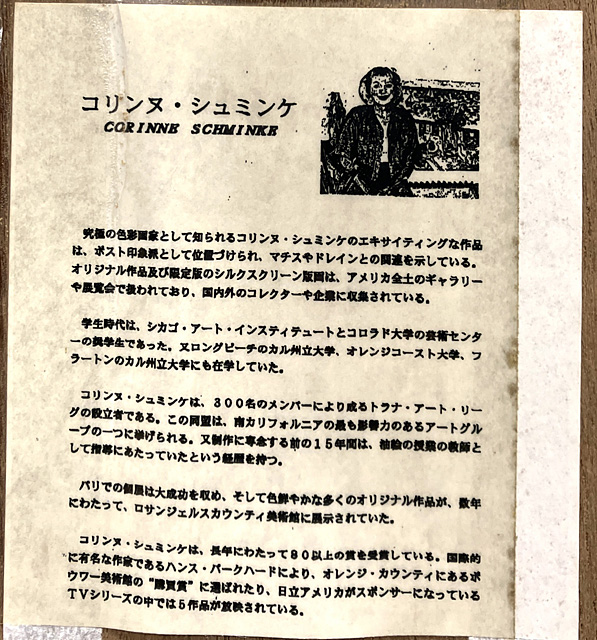 コリンヌ・シュミンケ
CORINNE SCHMINKE
究極の色彩画家として知られるコリンヌ・シュミンケのエキサイティングな作品
は、ポスト印象派として位置づけられ、マチスやドレインとの関連を示している。
オリジナル作品及び限定版のシルクスクリーン版画は、アメリカ全土のギャラリー
や展覧会で扱われており、国内外のコレクターや企業に収集されている。
学生時代は、シカゴ・アート・インスティテュートとコロラド大学の芸術センタ
ーの奨学生であった。又ロングビーチのカル州立大学、オレンジコースト大学、フ
ラートンのカル州立大学にも在学していた。
コリンヌ・シュミンケは、３００名のメンバーにより成るトラナ・アート・リー
グの設立者である。この同盟は、南カリフォルニアの最も影響力のあるアートグル
ープの一つに挙げられる。又制作に専念する前の１５年間は、油絵の授業の教師と
して指導にあたっていたという経歴を持つ。
パリでの個展は大成功を収め、そして色鮮やかな多くのオリジナル作品が、数年
にわたって、ロサンジェルスカウンティ美術館に展示されていた。
コリンヌ・シュミンケは、長年にわたって８０以上の賞を受賞している。国際的
に有名な作家であるハンス・バークハードにより、オレンジ・カウンティにあるボ
ウワー美術館の“購買賞”に選ばれたり、日立アメリカがスポンサーになっている
ＴＶシリーズの中では５作品が放映されている。